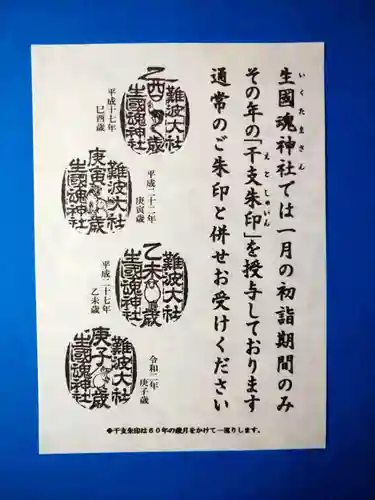 生國魂神社では一月の初詣期間のみ
いくたまさん
その年の「干支朱印」を授与しております
えとしゅいん
通常のご朱印と併せお受けください
乙酉歳
難波大社
生國魂神社
平成十七年
巳酉歳
庚寅歳
難波大社
生國魂神社
平成二十二年
庚寅歳
乙未歳
難波大社
生國魂神社
平成二十七年
乙未歳
庚子歳
難波大社
生國魂神社
令和二年
庚子歳
◆干支朱印は60年の歳月をかけて一巡りします。